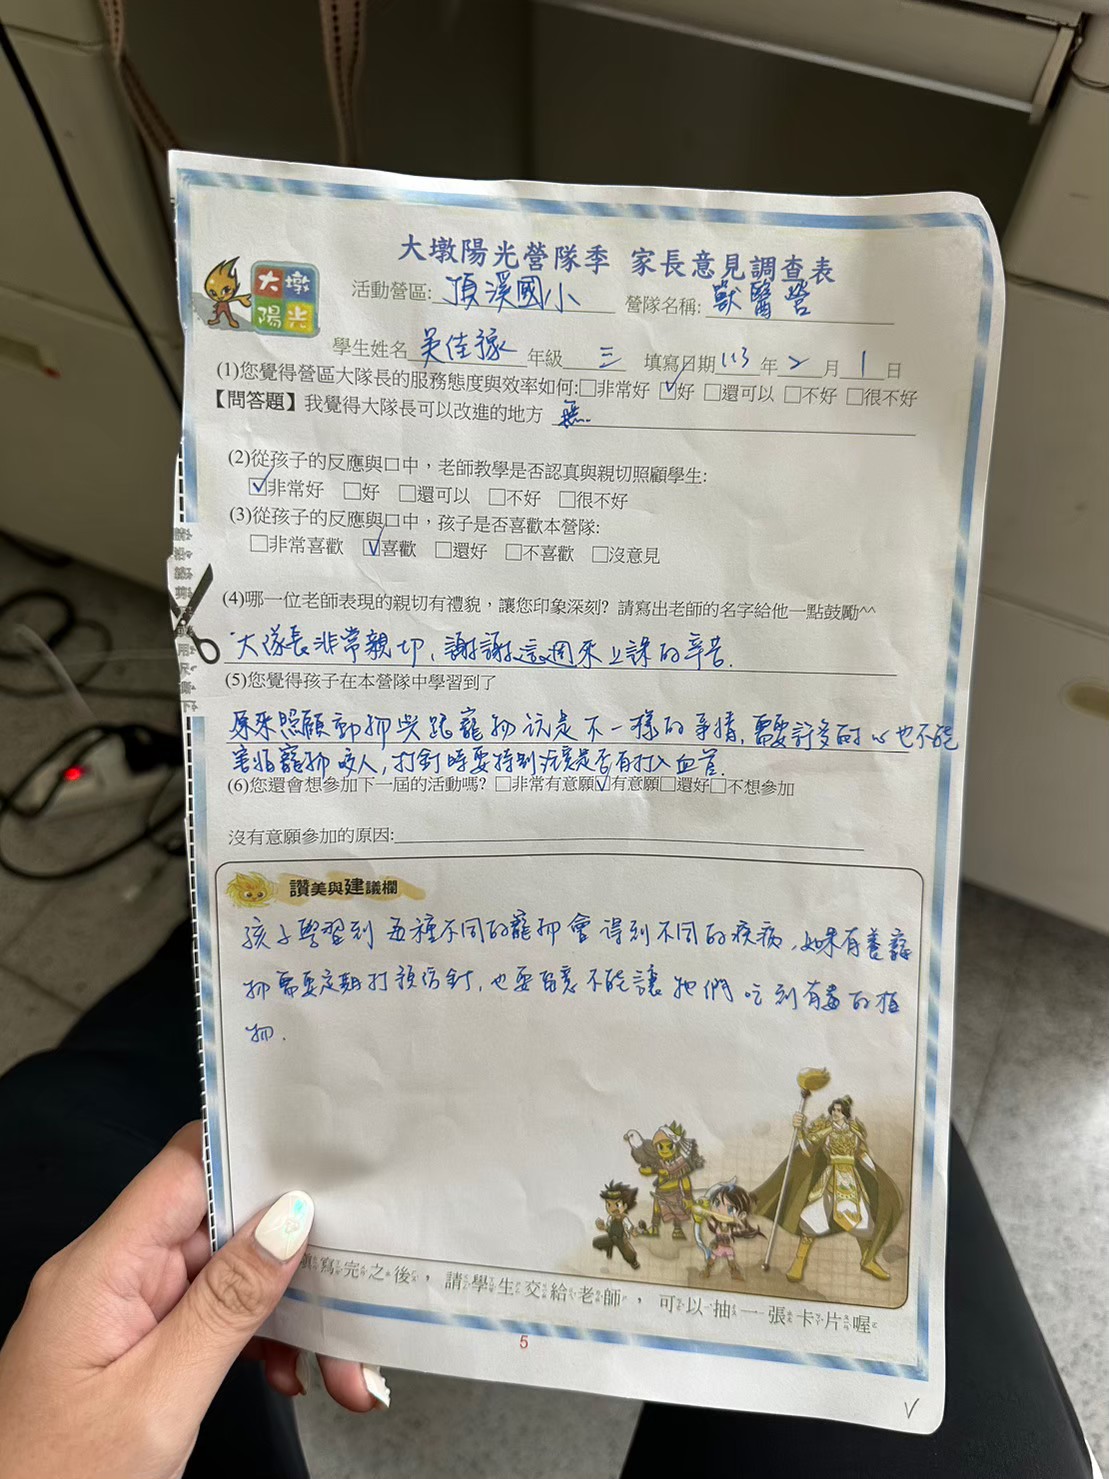 大墩陽光營隊季 家長意見調查表
大墩
陽光
活動營區: 頂溪國小 營隊名稱: 獸醫營
學生姓名 吳佳 年級 三 填寫日期 113 年 2 月 1 日
(1)您覺得營區大隊長的服務態度與效率如何:□非常好 ☑好 □還可以 □不好 □很不好
【問答題】我覺得大隊長可以改進的地方 無.
(2)從孩子的反應與口中，老師教學是否認真與親切照顧學生:
☑非常好 □好 □還可以 □不好 □很不好
(3)從孩子的反應與口中，孩子是否喜歡本營隊:
□非常喜歡 ☑喜歡 □還好 □不喜歡 □沒意見
(4)哪一位老師表現的親切有禮貌，讓您印象深刻? 請寫出老師的名字給他一點鼓勵^^
大隊長非常親切, 謝謝這週來上課的辛苦.
(5)您覺得孩子在本營隊中學習到了
原來照顧動物與跟寵物玩是不一樣的事情, 需要許多耐心也不能
害怕寵物咬人, 打針時要特別注意是否有打入血管.
(6)您還會想參加下一屆的活動嗎? □非常有意願☑有意願□還好□不想參加
沒有意願參加的原因:
讚美與建議欄
孩子學習到 五種不同的寵物會得到不同的疾病, 如果有養寵
物需要定期打預防針, 也要留意不能讓牠們吃到有毒的植
物.
填寫完之後，請學生交給老師，可以抽一張卡片喔
5